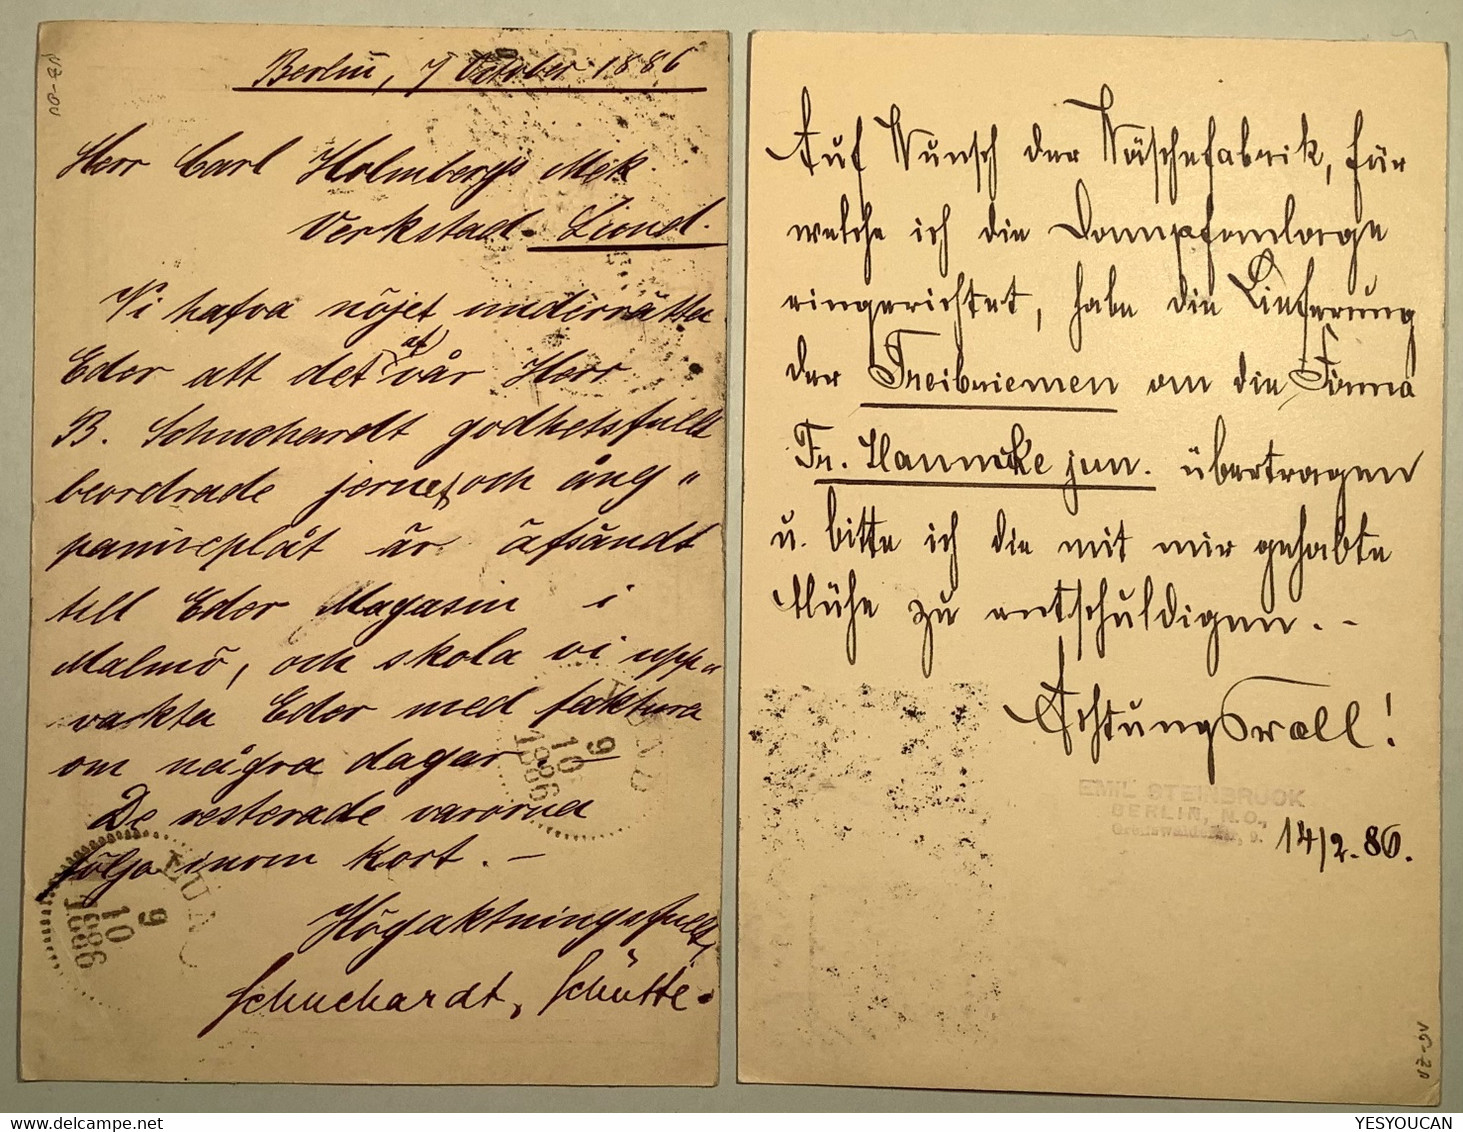 Berlin, 7 October 1886
Herr Carl Holmbergs Mek.
Verkstad. Lund.
Vi hafva nöjet underrätta
Eder att det af vår Herr
B. Schuchardt godhetsfullt
beordrade jernet och ång"
panneplåt är afsändt
till Eder Magasin i
Malmö, och skola vi upp"
vakta Eder med faktura
om några dagar
De resterade varorna
följa inom kort. –
Högaktningsfullt,
Schuchardt, Schütte.
LUND
9
10
1886
LUND
9
10
1886
Auf Wunsch der Wäschefabrik, für
welche ich die Dampfanlage
eingerichtet, habe die Lieferung
der Treibriemen an die Firma
Fr. Hannecke jun. übertragen
u. bitte ich die mit mir gehabte
Mühe zu entschuldigen. –
Achtungsvoll!
EMIL STEINBRÜCK
BERLIN, N.O.,
Greifswalderstr. 9.
14/2. 86.
YESYOUCAN